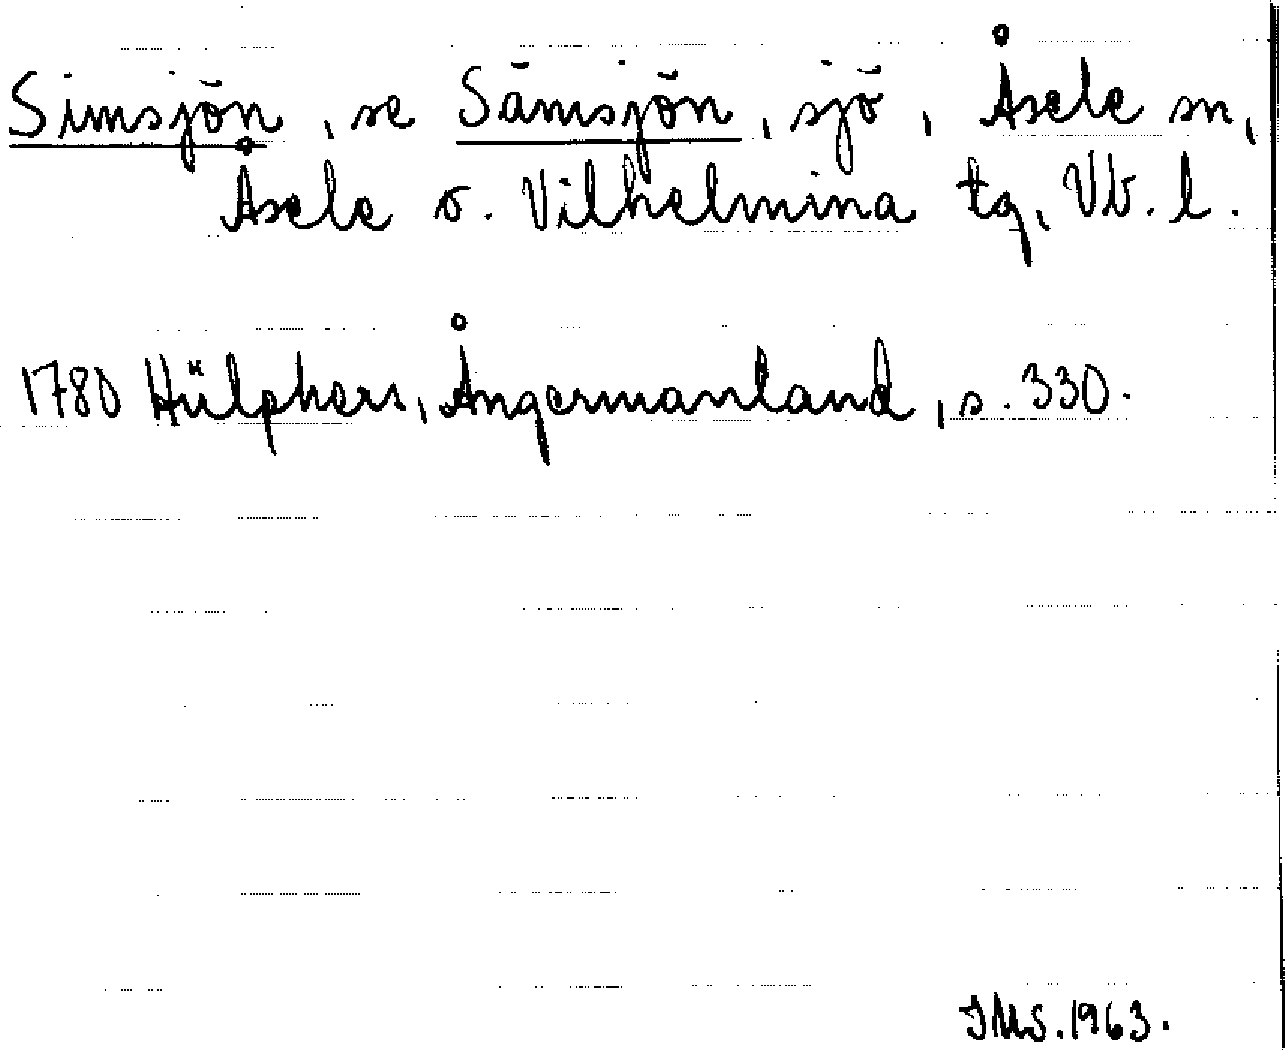 Simsjön, se Sämsjön, sjö, Åsele sn,
Åsele o. Vilhelmina tg, Vb. l.
1780 Hülphers, Ångermanland, s. 330.
IMS. 1963.